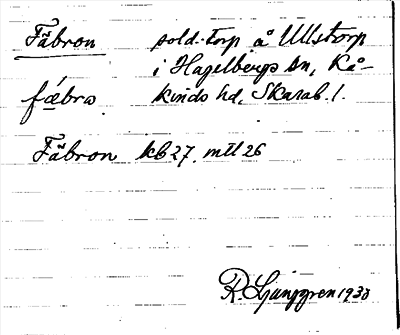 Fäbron sold.-torp å Ullstorp
i Hagelbergs sn, Kå-
fǽbrɷ kinds hd, Skarab. l.
Fäbron kb 27. mtl 26
R. Ljunggren 1938